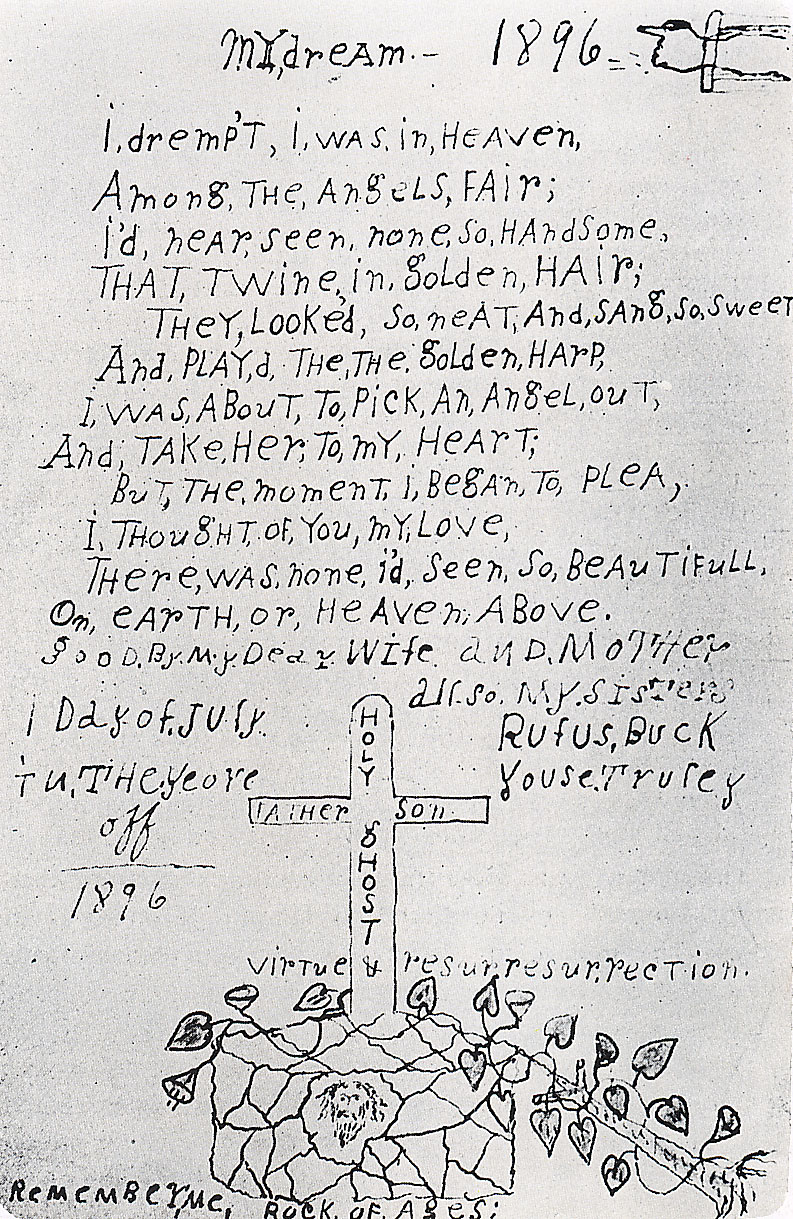 MY,dreAm.- 1896
i,drempᵗT, i,WAS,in,HeAven,
Among,THe,AngeLS,FAir;
i'd,neAr,seen,none,So,HAndSome,
THAT,TWine,in,golden,HAir;
THeY,LOOKed,So,neAT,And,SAng,So,SweeT
And,PLAY,d,THe,THe,golden,HArp,
i,WAS,ABouT,To,PiCK,An,AngeL,ouT,
And,TAKe,Her,To,mY,HeArT;
BuT,THe,momenT,i,BegAn,To,PLeA,
i,THougHT,oF,You,mY,Love,
THere,WAS,none,i'd,Seen,So,BeAuTiFuLL,
On,eArTH,or,HeAven,ABove.
gooD.By.My.DeAr.WiFe.anD.MoTHer
all.so.My.SisTers
1 Day.of.JUly.
Rufus,Buck
Tu,THe.yeore
youse.Truley
off
1896
HOLY
FATHer Son
gHOST
virTue & resurresur,recTion.
RememBer,me, ROCK,OF,AgeS;